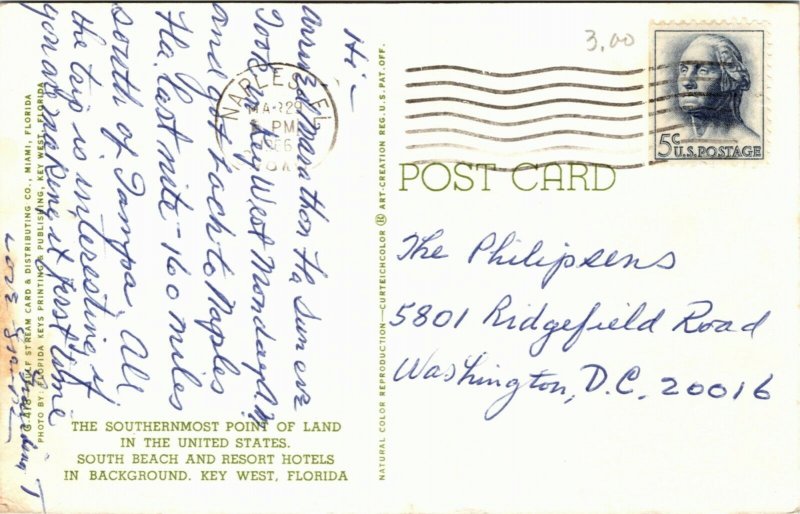 Hi –
arrived Marathon Fla Sun eve
Took in Key West Monday P.M.
and got back to Naples
Fla. last nite – 160 miles
south of Tampa. All
the trip is interesting if
you are making it first time
3.00
NAPLES, FL
MAR 29
PM
5¢
U.S. POSTAGE
POST CARD
The Philipsens
5801 Ridgefield Road
Washington, D.C. 20016
NATURAL COLOR REPRODUCTION—CURTEICHCOLOR ® ART-CREATION REG. U.S. PAT. OFF.
GULF STREAM CARD & DISTRIBUTING CO., MIAMI, FLORIDA
PHOTO BY: FLORIDA KEYS PRINTING & PUBLISHING, KEY WEST, FLORIDA
THE SOUTHERNMOST POINT OF LAND
IN THE UNITED STATES.
SOUTH BEACH AND RESORT HOTELS
IN BACKGROUND. KEY WEST, FLORIDA